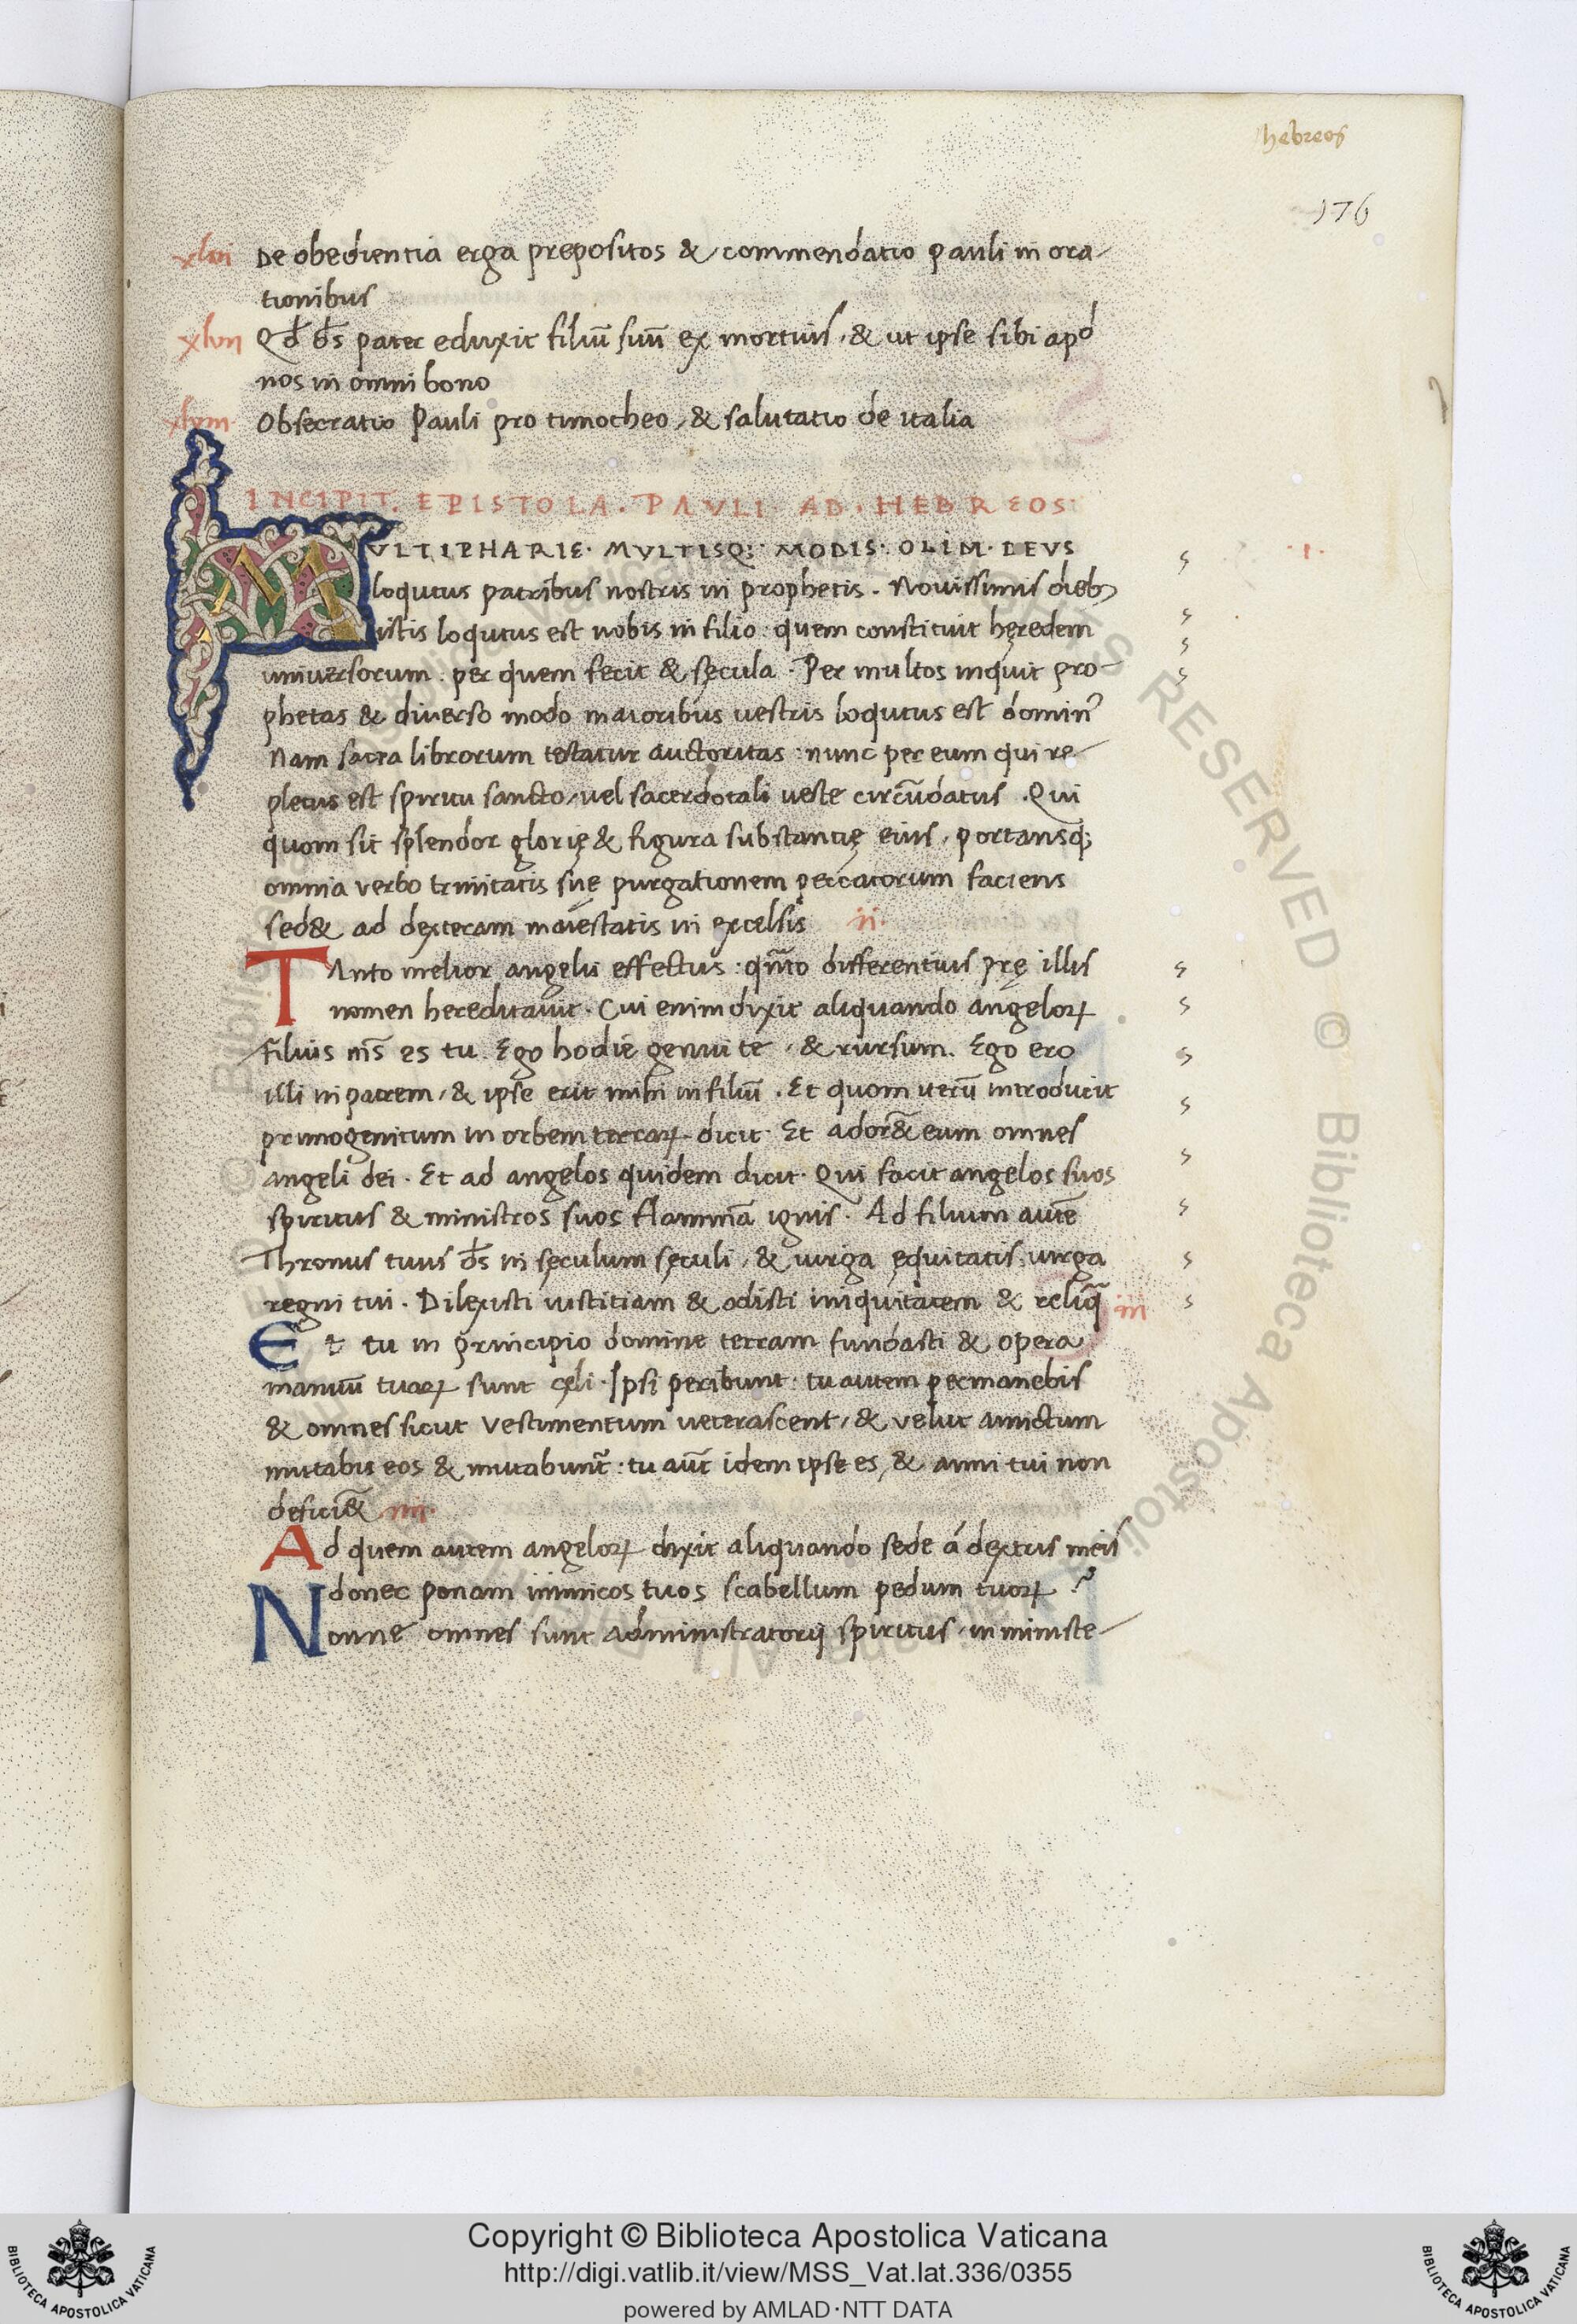 hebreos
176
xlvi De obedientia erga prepositos & commendatio pauli in ora-
tionibus
xlvii Qđ d̄s pater eduxit filiū suū ex mortuis, & ut ipse sibi apđ
nos in omni bono
xlviii Obsecratio Pauli pro timotheo, & salutatio de italia
INCIPIT. EPISTOLA. PAVLI. AD. HEBREOS:
MVLTIPHARIE. MVLTISQ; MODIS. OLIM. DEVS ·I·
loqutus patribus nostris in prophetis. Nouissimis dieb;
istis loqutus est nobis in filio: quem constituit hęredem
uniuersorum: per quem fecit & sęcula. Per multos inquit pro-
phetas & diuerso modo maioribus uestris loqutus est dominꝰ
Nam sacra librorum testatur auctoritas: nunc per eum qui re-
pletus est spiritu sancto, uel sacerdotali ueste circūdatus. Qui
quom sit splendor glorię & figura substantię eius, portansq;
omnia verbo trinitatis suę purgationem peccatorum faciens
sed& ad dexteram maiestatis in excelsis ii.
TAnto melior angelis effectus: quāto differentius prę illis
nomen hereditauit. Cui enim dixit aliquando angeloꝝ
Filius m̄s es tu. Ego hodie genui te, & rursum. Ego ero
illi in patrem, & ipse erit mihi in filiū. Et quom iterū introducit
primogenitum in orbem terraꝝ dicit. Et ador&̄ eum omnes
angeli dei. Et ad angelos quidem dicit. Qui facit angelos suos
spiritus & ministros suos flammā ignis. Ad filium autē
Thronus tuus d̄s in sęculum sęculi, & uirga ęquitatis, uirga
regni tui. Dilexisti iustitiam & odisti iniquitatem & reliq̄ iii
Et tu in principio domine terram fundasti & opera
manuū tuaꝝ sunt cęli. Ipsi peribunt: tu autem permanebis
& omnes sicut vestimentum ueterascent, & velut amictum
mutabis eos & mutabunt̄: tu aūt idem ipse es, & anni tui non
defici&̄ iiii.
Ad quem autem angeloꝝ dixit aliquando sede á dextris meis
donec ponam inimicos tuos scabellum pedum tuoꝝ?
Nonne omnes sunt administratorij spiritus, in ministe-
Copyright © Biblioteca Apostolica Vaticana
http://digi.vatlib.it/view/MSS_Vat.lat.336/0355
powered by AMLAD·NTT DATA
BIBLIOTECA APOSTOLICA VATICANA
BIBLIOTECA APOSTOLICA VATICANA